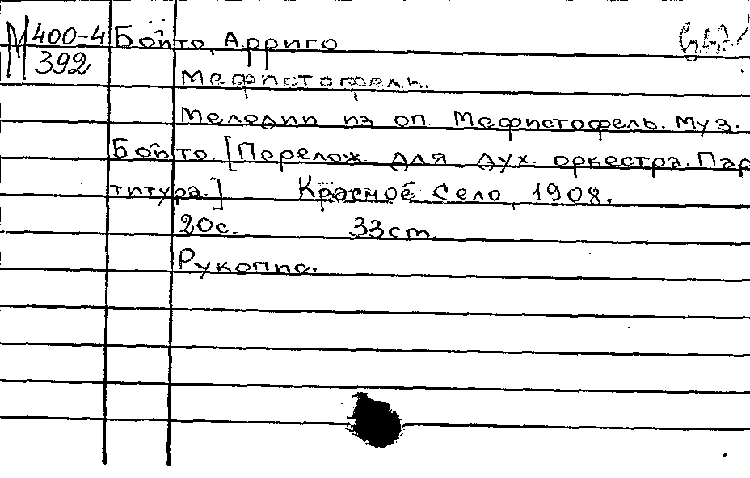 М 400-4 Бойто, Арриго
392
Мефистофель.
Мелодии из оп. Мефистофель. Муз.
Бойто [Перелож. для дух. оркестра. Пар
титура.] Красное Село, 1908.
20с. 33ст.
Рукопис.